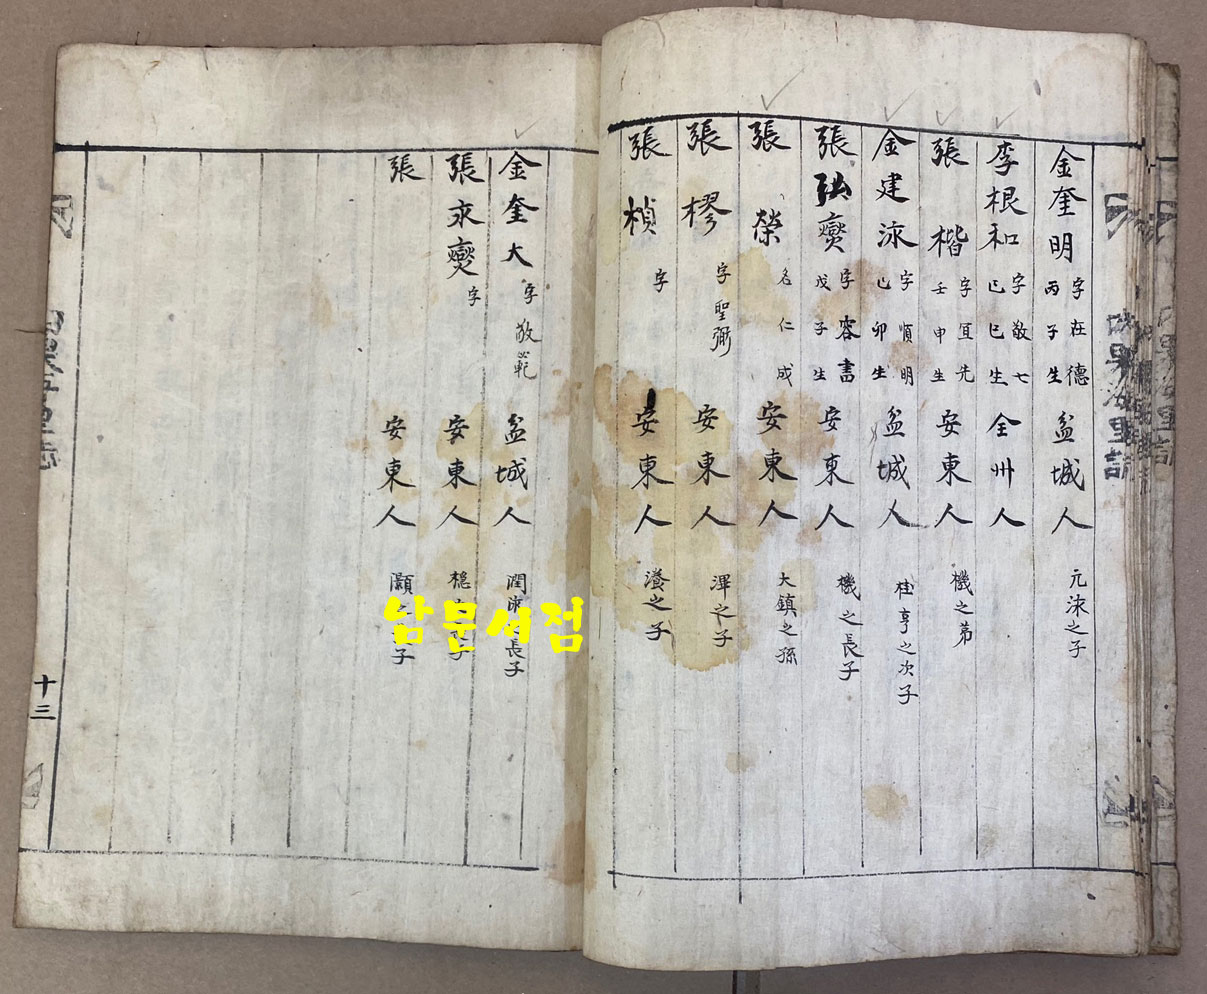 金奎明 字在德 丙子生 盆城人 元洙之子
李根和 字敬七 己巳生 全州人
張楷 字宜先 壬申生 安東人 機之弟
金建泳 字順明 己卯生 盆城人 桂亨之次子
張弘燮 字容書 戊子生 安東人 機之長子
張榮 名仁成 安東人 大鎮之孫
張樛 字聖弼 安東人 渾之子
張楨 字 安東人 瀁之子
金奎大 字敬範 盆城人 潤 長子
張永燮 字 安東人 子
張 安東人 灝之子
十三
남문서점